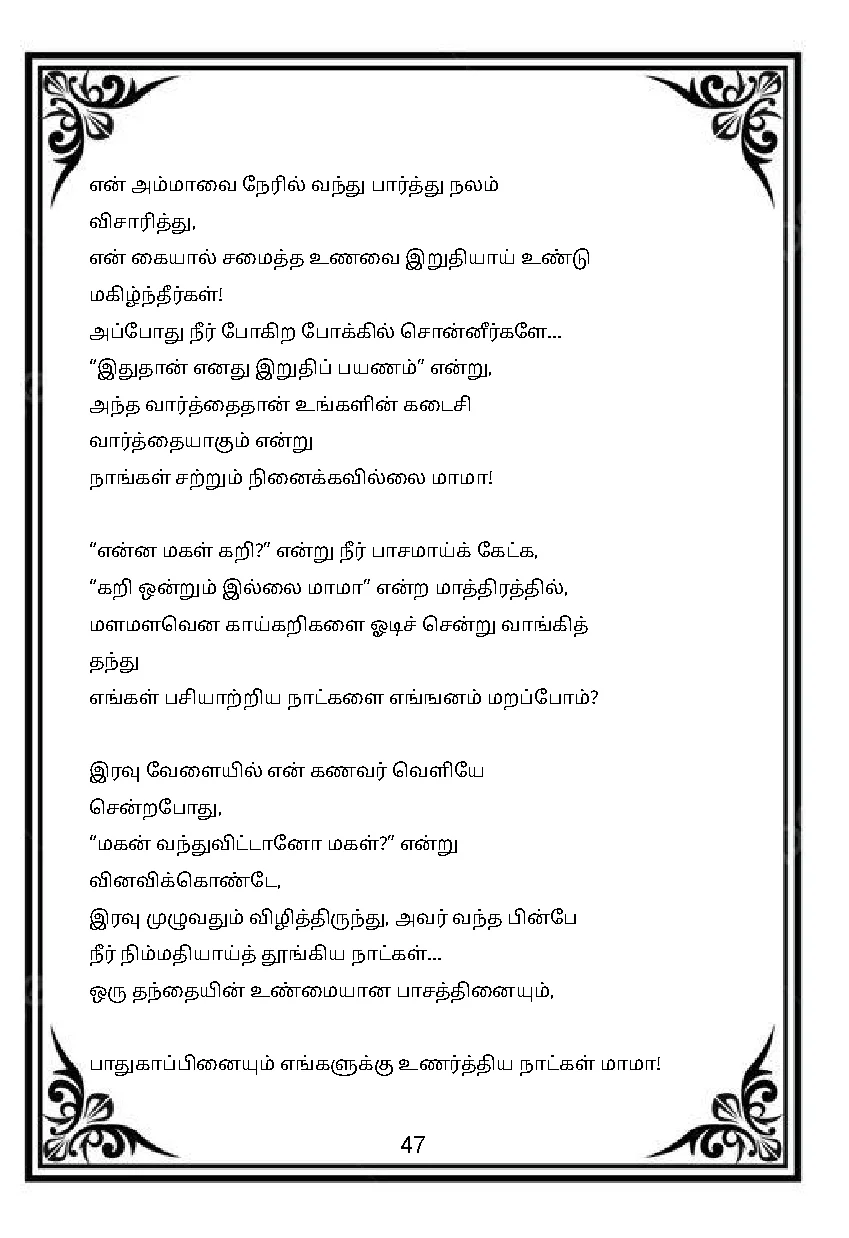 என் அம்மாவை நேரில் வந்து பார்த்து நலம்
விசாரித்து,
என் கையால் சமைத்த உணவை இறுதியாய் உண்டு
மகிழ்ந்தீர்கள்!
அப்போது நீர் போகிற போக்கில் சொன்னீர்களே...
“இதுதான் எனது இறுதிப் பயணம்” என்று,
அந்த வார்த்தைதான் உங்களின் கடைசி
வார்த்தையாகும் என்று
நாங்கள் சற்றும் நினைக்கவில்லை மாமா!
“என்ன மகள் கறி?” என்று நீர் பாசமாய்க் கேட்க,
“கறி ஒன்றும் இல்லை மாமா” என்ற மாத்திரத்தில்,
மளமளவென காய்கறிகளை ஓடிச் சென்று வாங்கித்
தந்து
எங்கள் பசியாற்றிய நாட்களை எங்ஙனம் மறப்போம்?
இரவு வேளையில் என் கணவர் வெளியே
சென்றபோது,
“மகன் வந்துவிட்டானோ மகள்?” என்று
வினவிக்கொண்டே,
இரவு முழுவதும் விழித்திருந்து, அவர் வந்த பின்பே
நீர் நிம்மதியாய்த் தூங்கிய நாட்கள்...
ஒரு தந்தையின் உண்மையான பாசத்தினையும்,
பாதுகாப்பினையும் எங்களுக்கு உணர்த்திய நாட்கள் மாமா!
47